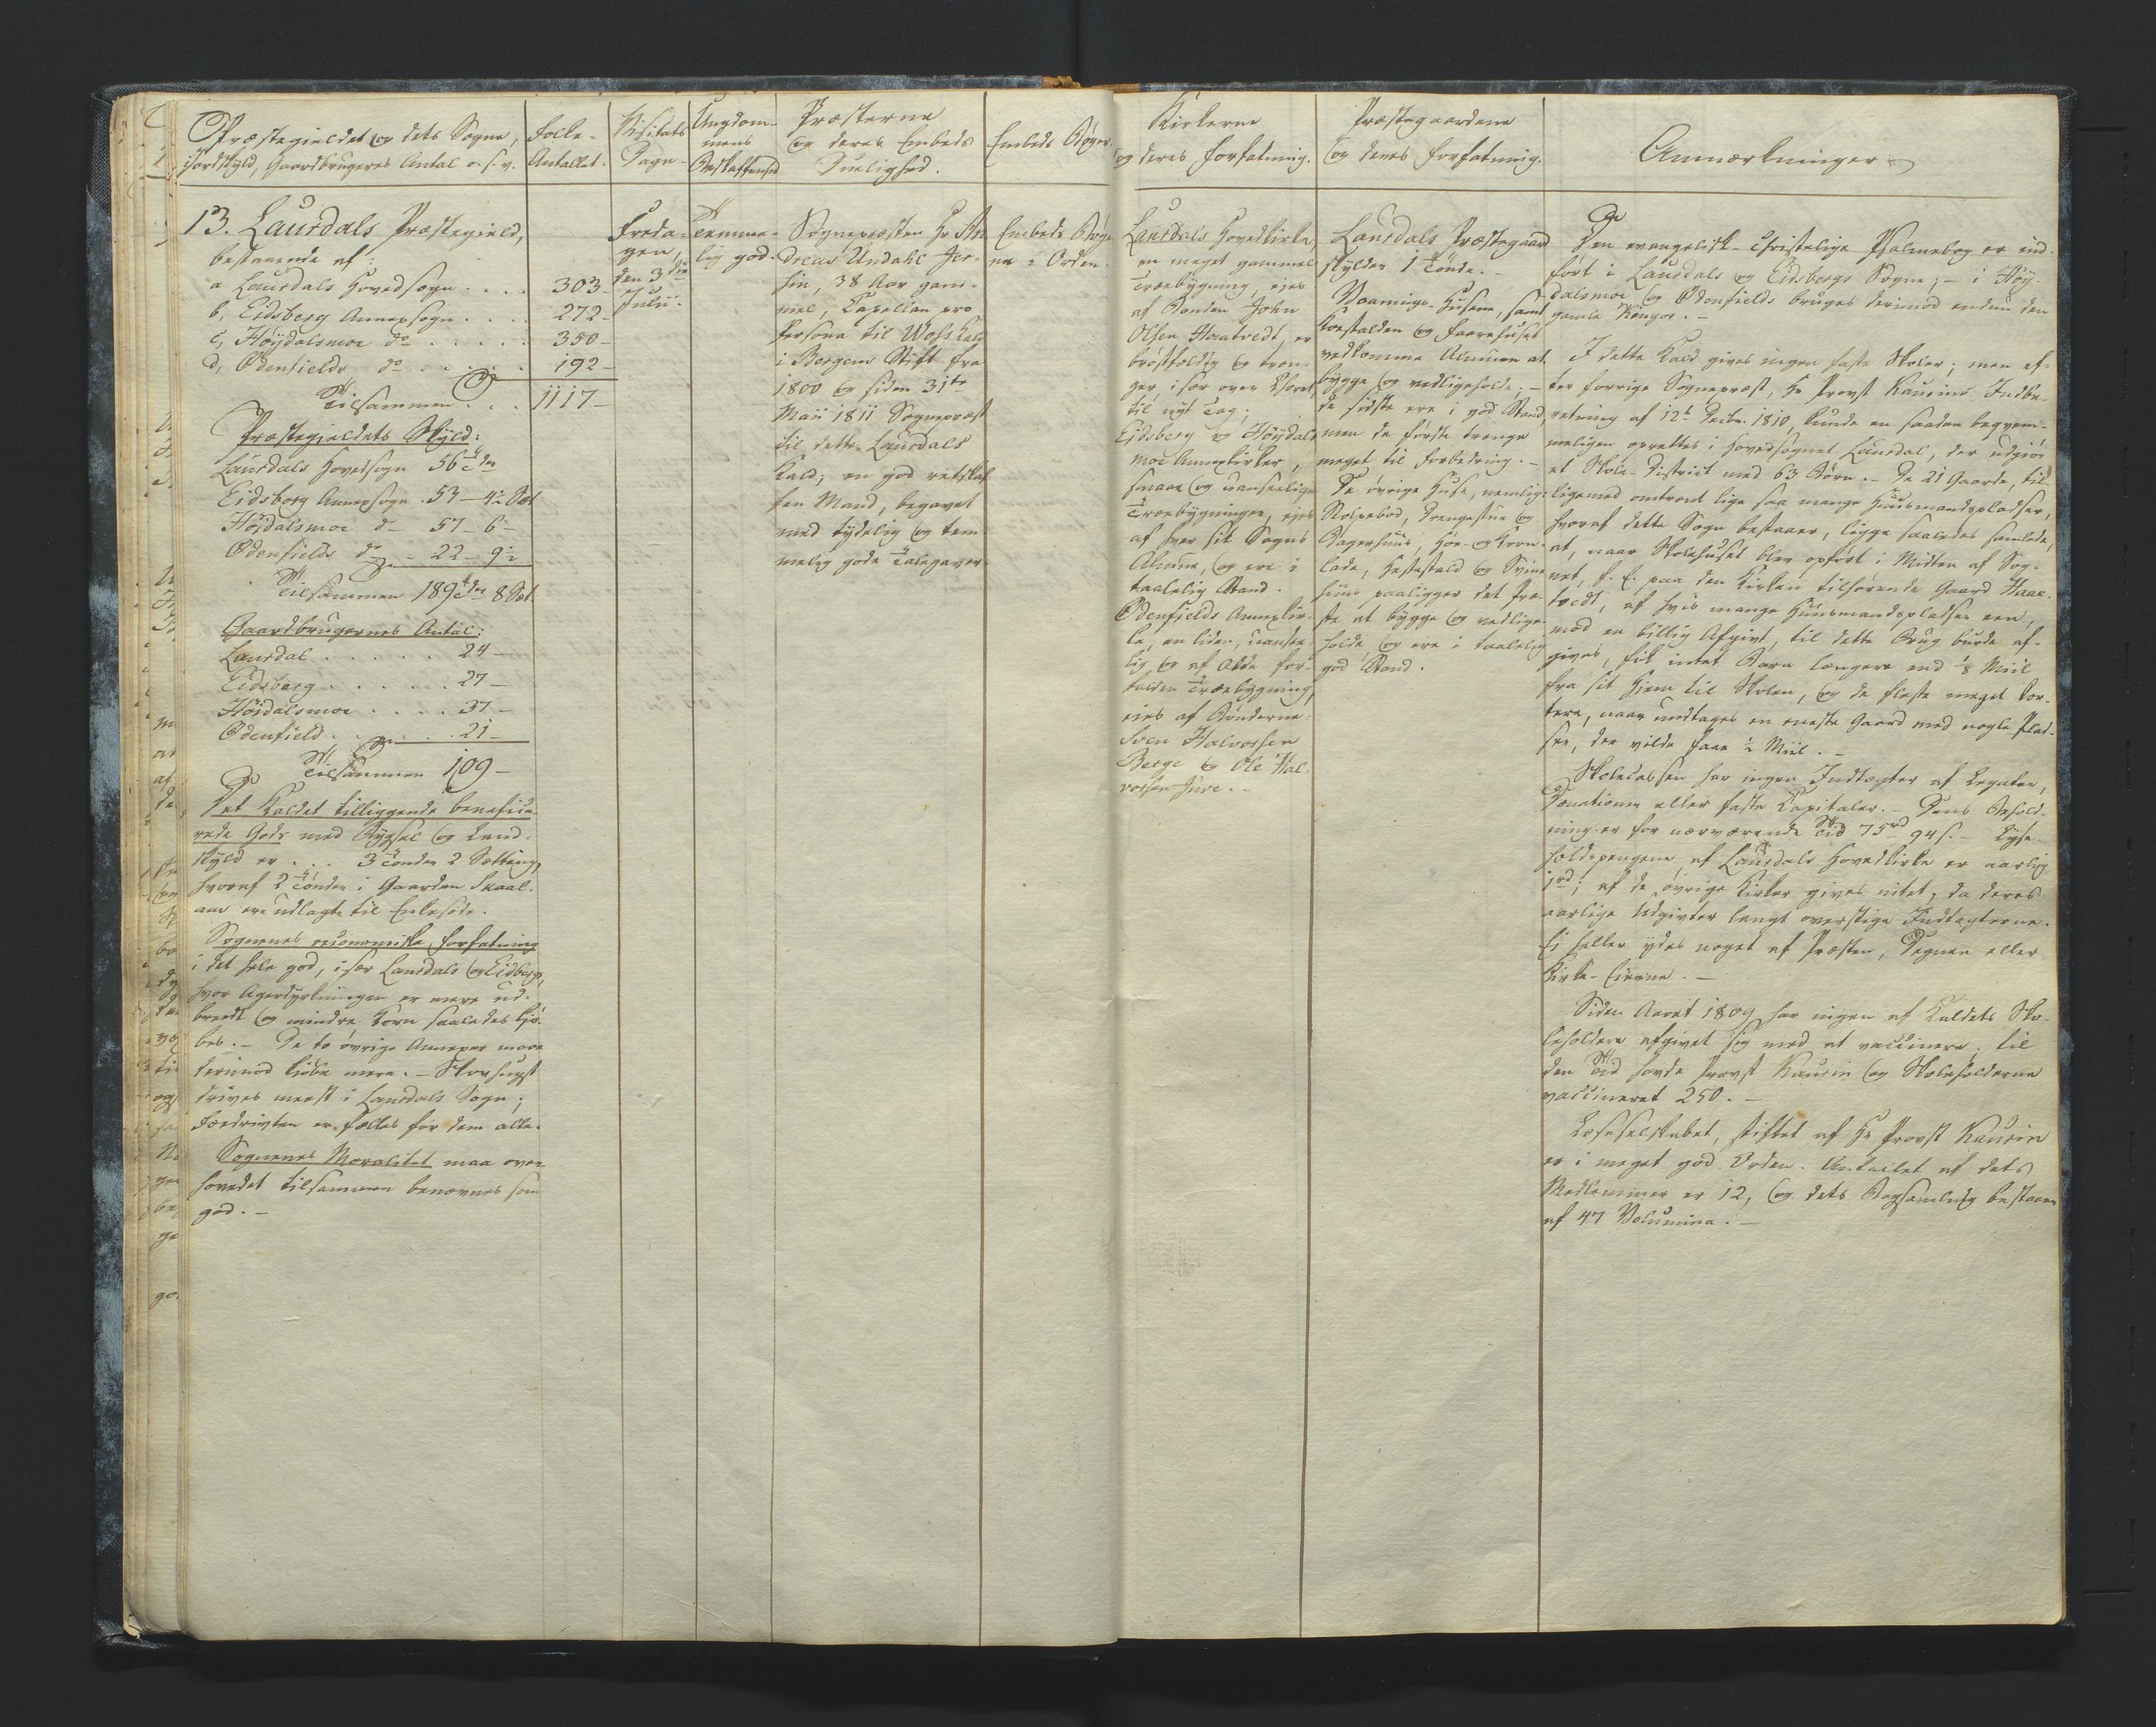 Præstegieldet og dets Sogne,
Jordskyld, Gaardbrugeres Antal o. s. v.
Folke-
Antallet.
Visitats
Dage
Ungdom-
mens
Beskaffenhed
Præsterne
og deres Embeds
Duelighed.
Embeds Bøger.
13. Laurdals Præstegield,
bestaaende af:
a Laurdals Hovedsogn . . . . 303-
b, Eidsberg Annexsogn . . . . 272-
c, Höydalsmoe do . . . . . 350-
d, Ødenfields do . . . . . 192-
Tilsammen . . . 1117-
Præstegieldets Skyld:
Laurdals Hovedsogn 56 tdr
Eidsborg Annexsogn . 53 - 4½ Sæt
Höidalsmoe do 57 - 6 -
Ødenfields do - 22 - 9½
Tilsammen 189 tdr 8 Sæt.
Gaardbrugernes Antal:
Laurdal . . . . . . 24-
Eidsberg . . . . . . 27-
Höidalsmoe . . . . 37-
Ødenfield . . . . . 21-
Tilsammen 109-
Det Kaldet tilliggende benefice-
rede Gods med Bygsel og Land-
skyld er . . . 3 Tönder 2 Sötting,
hvoraf 2 Tönder i Gaarden Skaal-
aae ere udlagte til Enkesæde.
Sognenes oeconomiske Forfatning
i det hele god, især Laurdals og Eidsbergs,
hvor Agerdyrkningen er mere ud-
bredt og mindre Korn saaledes kjö-
bes. - De to øvrige Annexer maae
derimod kiöbe mere. - Skovhugst
drives meest i Laurdals Sogn;
Fædrivten er fælles for dem alle.
Sognenes Moralitet maa over-
hovedet tilsammen benævnes som
god. -
Freda-
gen,
den 3die
Julii.
Temme-
lig god.
Sognepræsten Hr An-
dreas Undahl Jer-
sin, 38 Aar gam-
mel, Capellan pro
Persona til Woss Kald
i Bergens Stift fra
1800 og siden 31te
Maii 1811 Sognepræst
til dette Laurdals
Kald; en god retskaf-
fen Mand, begavet
med tydelig og tem-
melig gode Talegaver.
Embeds Bøge-
ne i Orden.
Kirkerne
og deres Forfatning.
Præstegaardene
og deres Forfatning.
Anmærkninger
Laurdals Hovedkirke
en meget gammel
Træebygning, ejes
af Bonden John
Olsen Haatvedt, er
bröstholdig og træn-
ger, især over Choret,
til nyt Tag;
Eidsberg og Höydals-
moe Annexkirker,
smaae og uanseelige
Træebygninger, ejes
af hver sit Sogns
Almue, og ere i
taalelig Stand.
Ødenfields Annexkir-
ke, en liden, uansee-
lig, og af Ælde for-
falden Træebygning,
eies af Bönderne
Sven Halvorsen
Berge og Ole Hal-
vorsen Juve. -
Laurdals Præstegaard
skylder 1 Tönde. -
Vaanings-Husene, samt
Koestalden og Faarehuset
vedkomme Almuen at
bygge og vedligeholde; -
de sidste ere i god Stand,
men de første trænge
meget til Forbedring. -
De øvrige Huse, nemlig:
Stolpebod, Drengestue og
Bagerhuus, Höe- og Korn-
lade, Hestestald og Sviin-
huus paaligger det Præ-
ste at bygge og vedlige-
holde, og ere i taalelig
god Stand.
Den evangelisk-christelige Psalmebog er ind-
fört i Laurdals og Eidsbergs Sogne; - i Höy-
dalsmoe og Ødenfields bruges derimod endnu den
gamle Kingos. -
I dette Kald gives ingen faste Skoler; men ef-
ter forrige Sognepræst, Hr Provst Kaurins Indbe-
retning af 12te Decbr. 1810, kunde en saadan beqvem-
meligen oprettes i Hovedsognet Laurdal, der udgiör
et Skole-District med 63 Börn. - De 21 Gaarde, til-
ligemed omtrent lige saa mange Huusmandspladser,
hvoraf dette Sogn bestaaer, ligge saaledes samlede,
at, naar Skolehuset blev opfört i Midten af Sog-
net, f. E. paa den Kirken tilhörende Gaard Haae-
tvedt, af hvis mange Huusmandspladser een,
mod en billig Afgivt, til dette Brug burde af-
gives, fik intet Barn længere end ⅛ Miil
fra sit Hjem til Skolen, og de fleste meget kor-
tere, naar undtages en eneste Gaard med nogle Plad-
ser, der vilde faae ½ Miil. -
Skolecassen har ingen Indtægter af Legater,
Donationer eller faste Capitaler. - Dens Behold-
ning er for nærværende Tid 75 rd 94 s. -
holdspengene af Laurdals Hovedkirke er aarlig
1 rd; af de øvrige Kirker gives intet, da deres
aarlige Udgivter langt overstige Indtægterne.
Ei heller ydes noget af Præsten, Degnen eller
Kirke-Eierne. -
Siden Aaret 1809 har ingen af Kaldets Sko-
leholdere afgivet sig med at vaccinere; til
den Tid havde Provst Kaurin og Skoleholderne
vaccineret 250. -
Læseselskabet, stiftet af Hr Provst Kaurin
er i meget god Orden. Antallet af dets
Medlemmer er 12, og dets Bogsamling bestaaer
af 47 Volumina. -